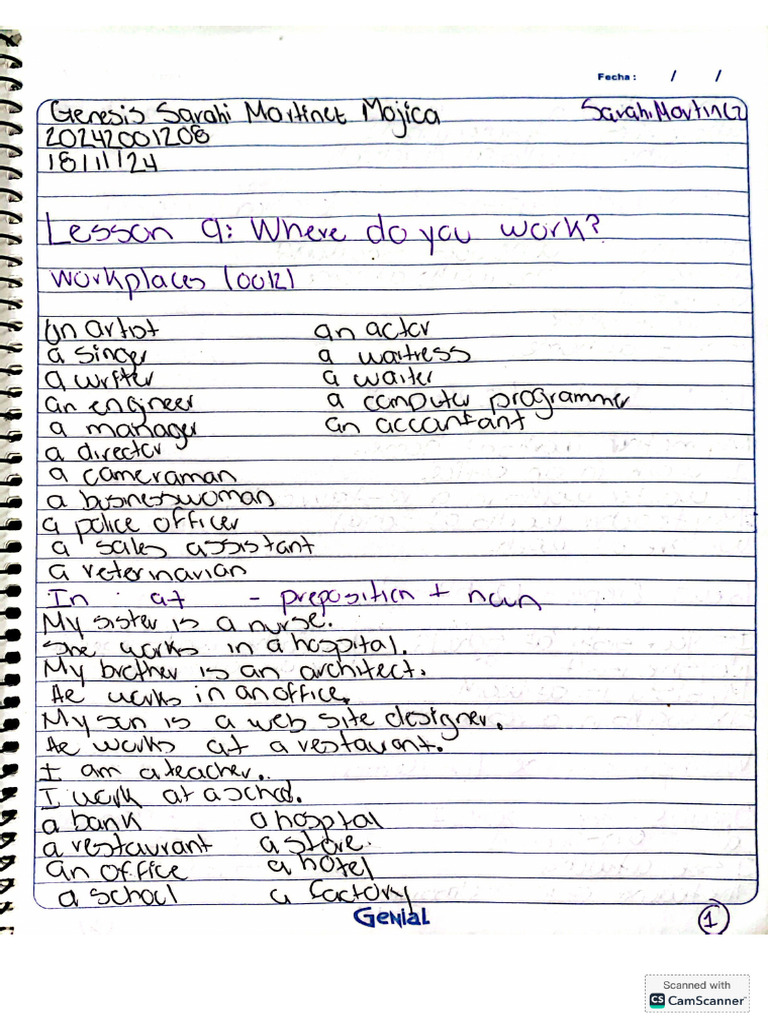 Fecha: / /
Genesis Sarahi Martinez Mojica Sarahi Martinez
20242001208
18/11/24
Lesson 9: Where do you work?
Workplaces
an artist an actor
a singer a waitress
a writer a waiter
an engineer a computer programmer
a manager an accantant
a director
a cameraman
a businesswoman
a police officer
a sales assistant
a veterinarian
In at - preposition + noun
My sister is a nurse.
She works in a hospital.
My brother is an architect.
He works in an office.
My son is a web site designer.
He works at a restaurant.
I am a teacher.
I work at a school.
a bank a hospital
a restaurant a store.
an office a hotel
a school a factory
Genial 1
Scanned with
CS CamScanner